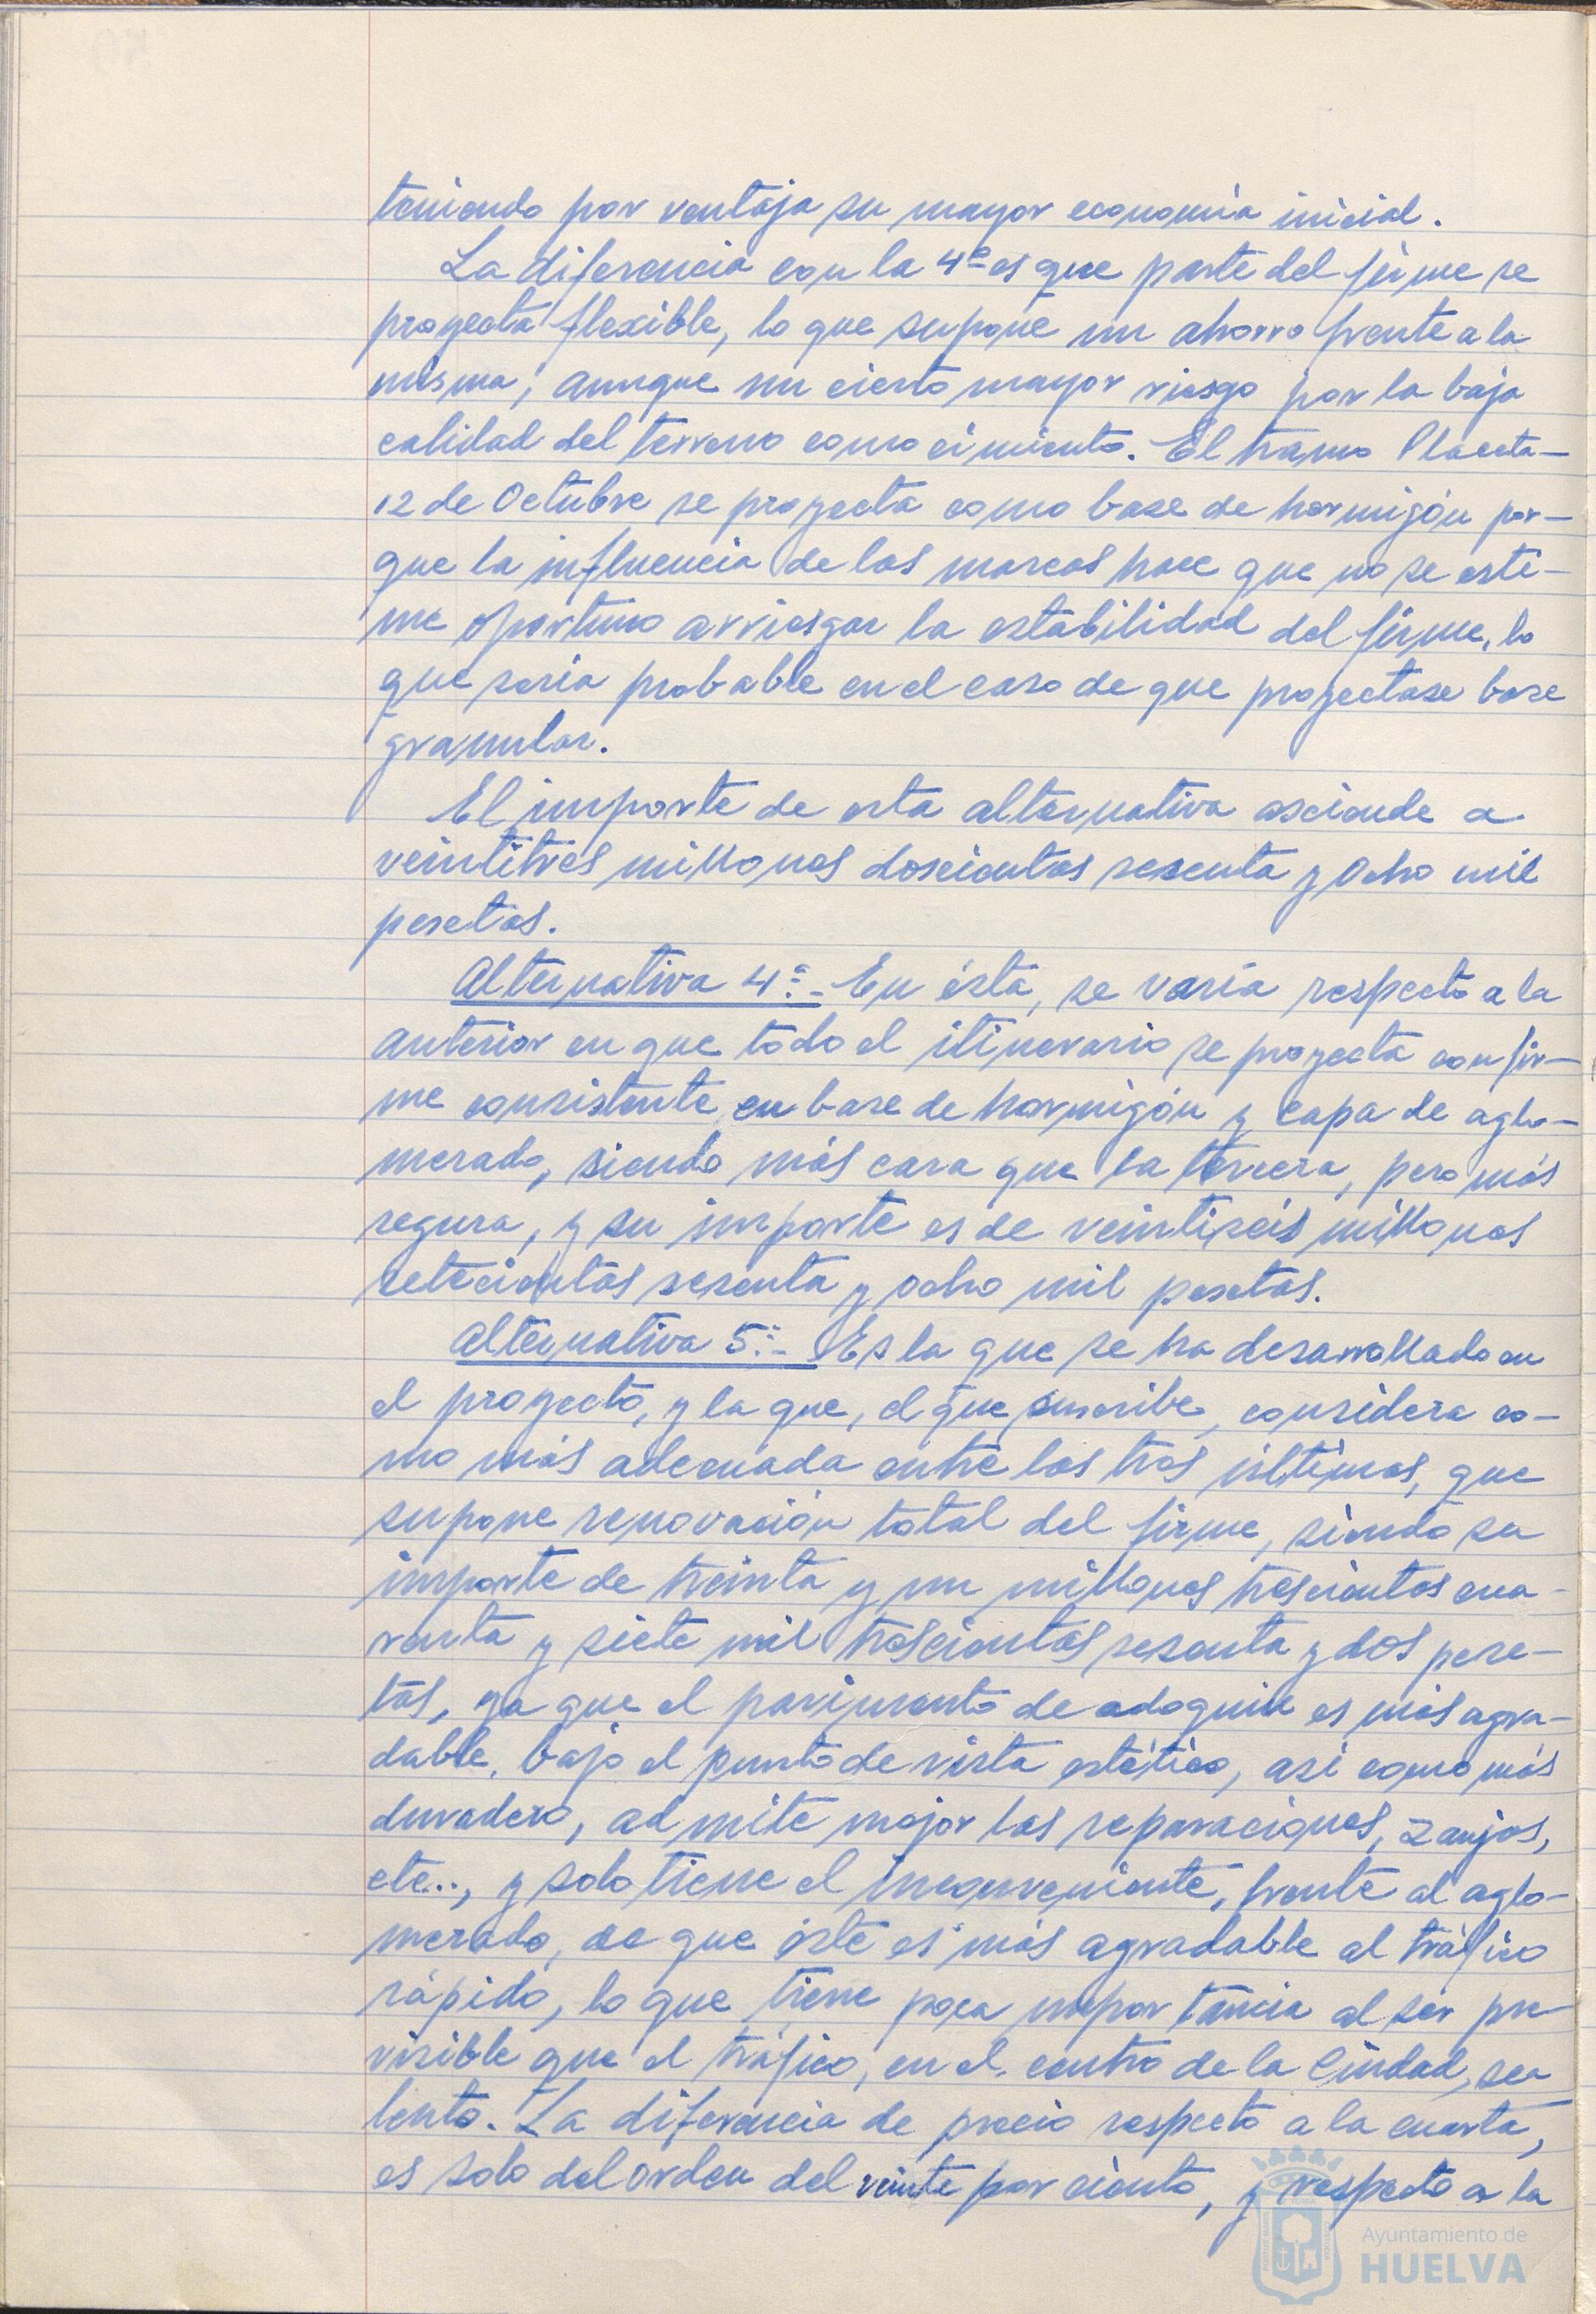 teniendo por ventaja su mayor economía inicial.
La diferencia con la 4ª es que parte del firme se
proyecta flexible, lo que supone un ahorro frente a la
misma, aunque un cierto mayor riesgo por la baja
calidad del terreno como cimiento. El tramo Placeta-
12 de Octubre se proyecta como base de hormigón por-
que la influencia de las mareas hace que no se esti-
me oportuno arriesgar la estabilidad del firme, lo
que sería probable en el caso de que proyectase base
granular.
El importe de esta alternativa asciende a
veintitres millones doscientas sesenta y ocho mil
pesetas.
Alternativa 4ª.- En ésta, se varía respecto a la
anterior en que todo el itinerario se proyecta con fir-
me consistente en base de hormigón y capa de aglo-
merado, siendo más cara que la tercera, pero más
segura, y su importe es de veintiseis millones
setecientas sesenta y ocho mil pesetas.
Alternativa 5ª.- Es la que se ha desarrollado en
el proyecto, y la que, el que suscribe, considera co-
mo más adecuada entre las tres últimas, que
supone renovación total del firme, siendo su
importe de treinta y un millones trescientas cua-
renta y siete mil trescientas sesenta y dos pese-
tas, ya que el pavimento de adoquin es más agra-
dable, bajo el punto de vista estético, así como más
duradero, admite mejor las reparaciones, zanjas,
etc.., y solo tiene el inconveniente, frente al aglo-
merado, de que éste es más agradable al tráfico
rápido, lo que tiene poca importancia al ser pre-
visible que el tráfico, en el centro de la Ciudad, sea
lento. La diferencia de precio respecto a la cuarta,
es solo del orden del veinte por ciento, y respecto a la
Ayuntamiento de
HUELVA